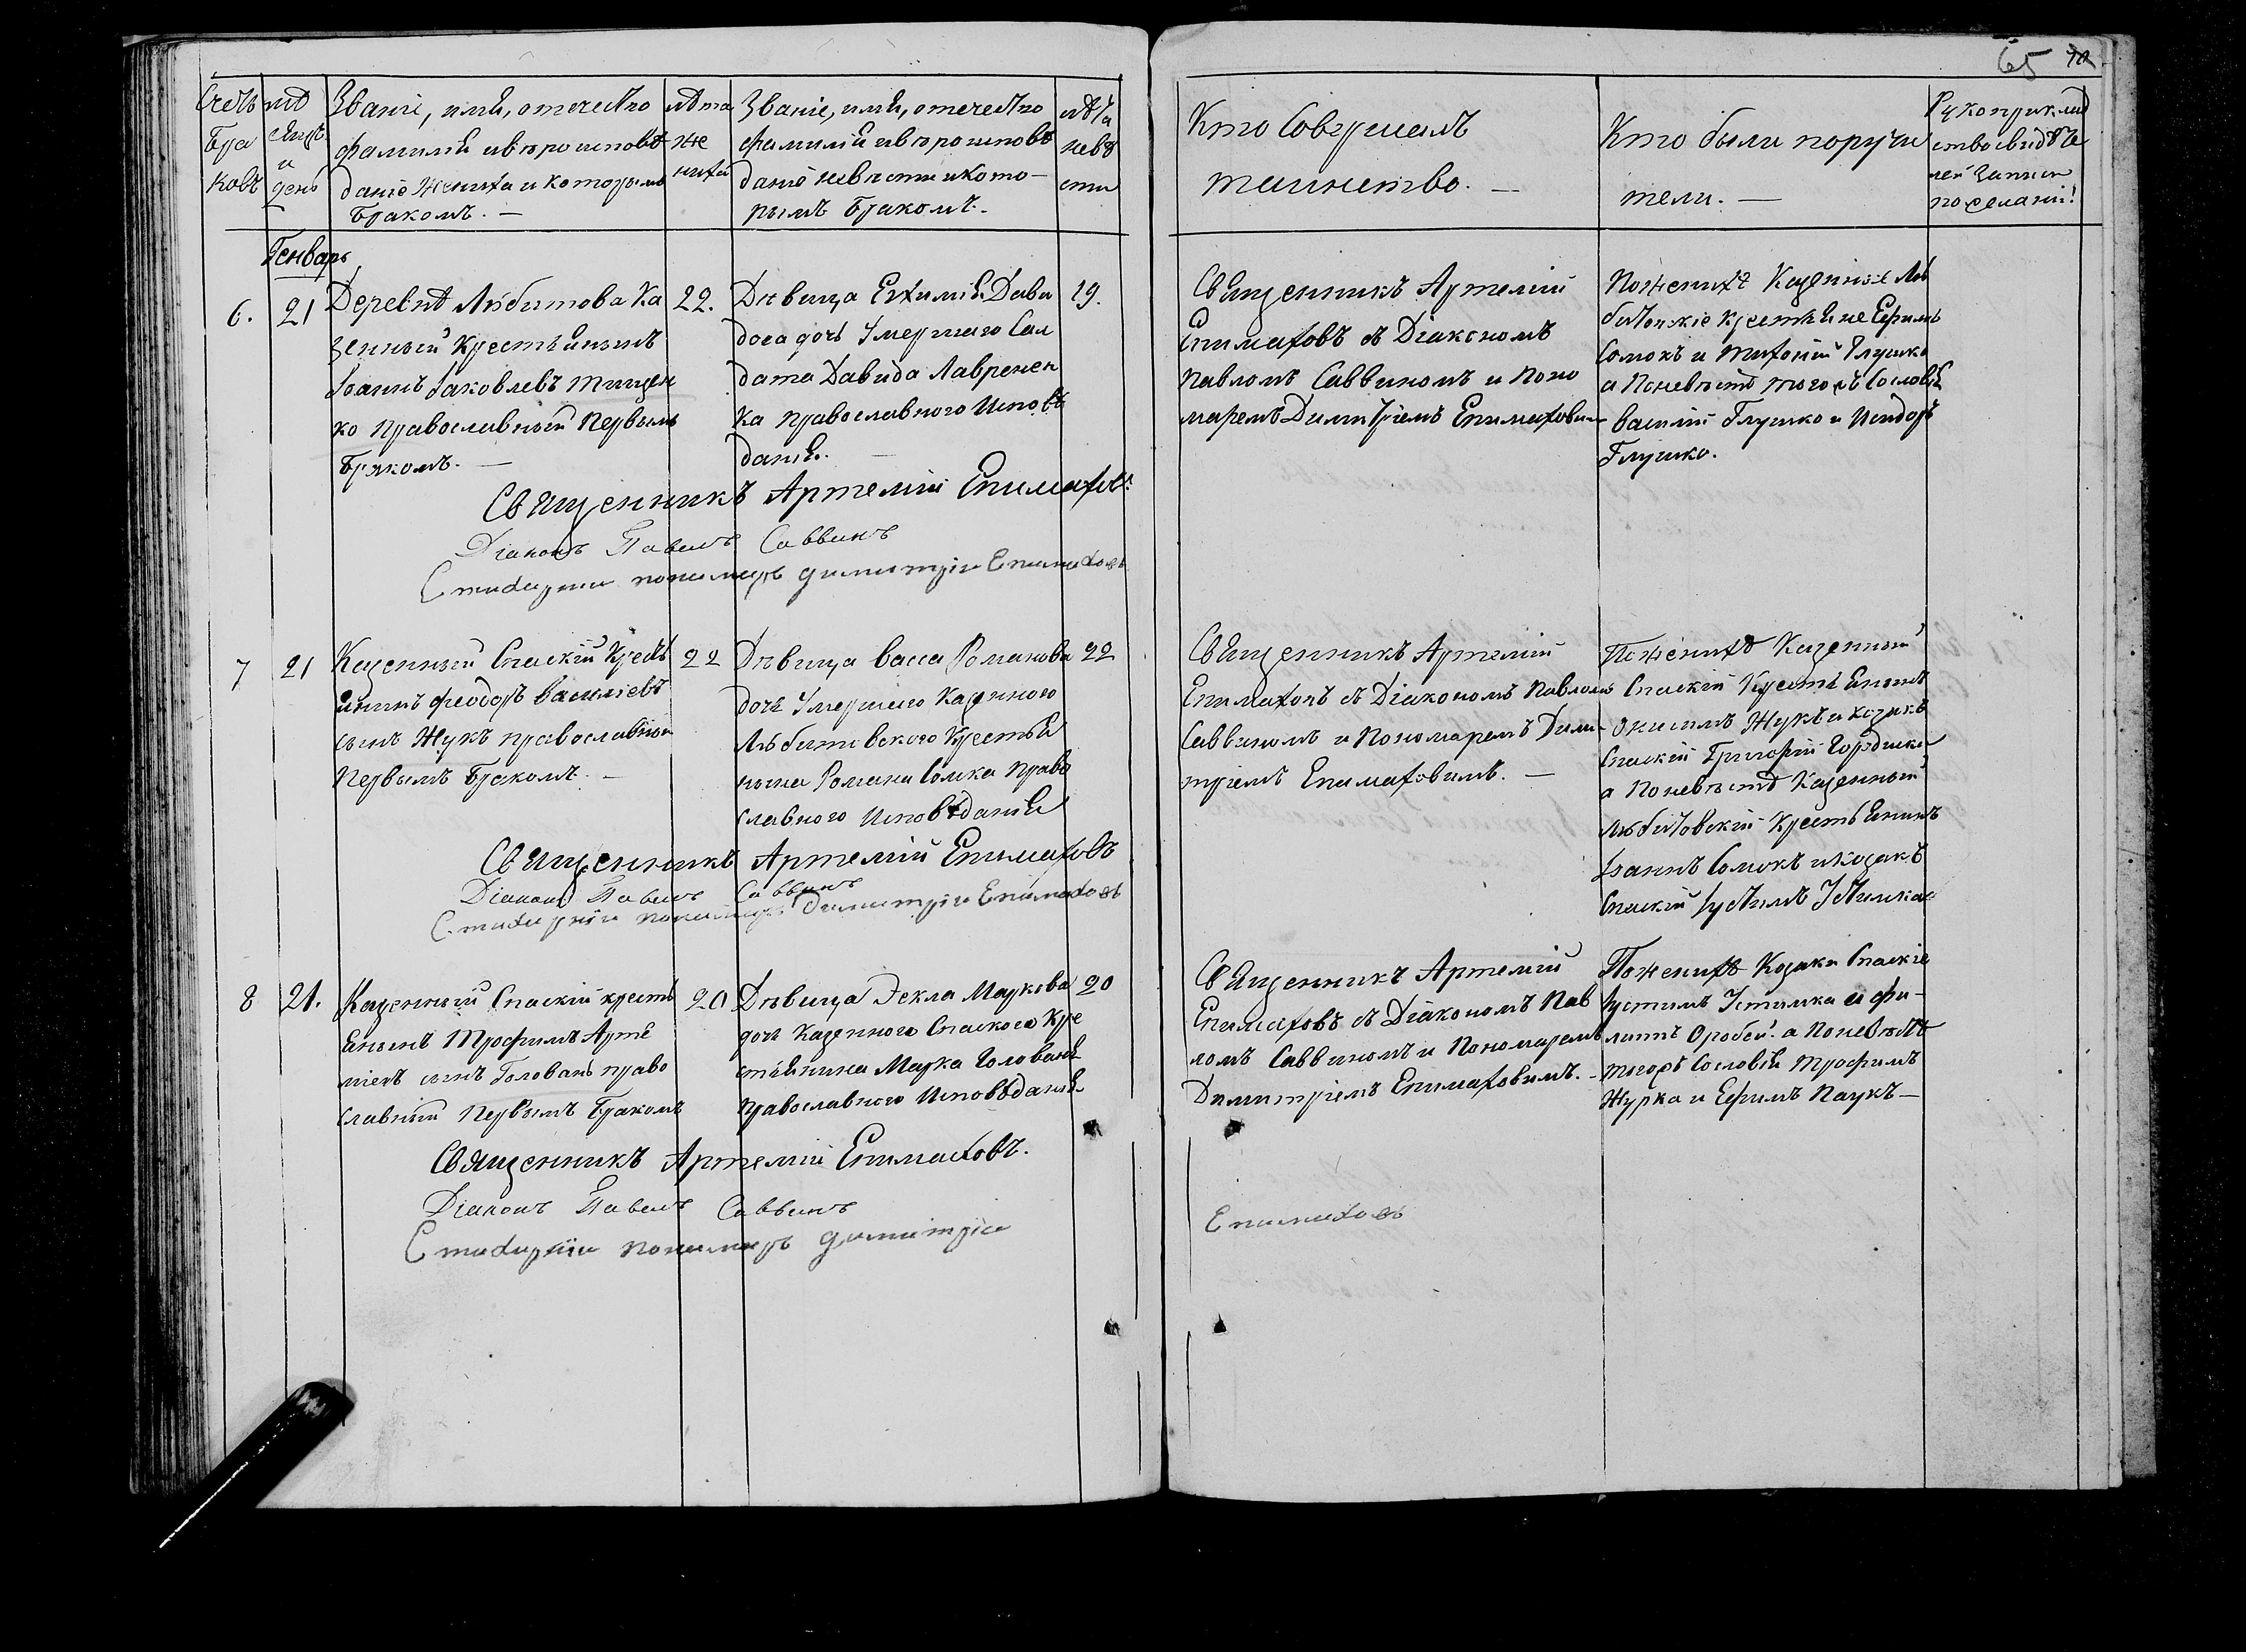 65
Счетъ
Бра
ковъ
мѣ
сяцъ
и
день
Званіе, имя, отечество
фамилія и вѣроисповѣ
даніе Жениха и которымъ
Бракомъ. —
лѣта
же
ниха
Званіе, имя, отечество
фамилія и вѣроисповѣ
даніе невѣсти и кото—
рымъ Бракомъ.
лѣта
невѣ
сти
Кто Совершалъ
таинство. —
Кто были поручи
тели. —
Рукоприклад
ство свидѣте
лей записи
по желанію!
Генварь
6.
21
Деревнѣ Любитова Ка
зенный Крестьянинъ
Іоаннъ Іаковлевъ Тищен
ко Православный Первымъ
Бракомъ. —
22.
Дѣвица Евхимія Дави
дова дочь Умершаго Сол
дата Давида Лавренен
ка Православного Исповѣ
данія.
19.
Священникъ Артемій
Епимаховъ съ Діакономъ
Павломъ Саввиномъ и Поно
маремъ Димитріемъ Епимаховим
По женихѣ Казенные Лю
битовскіе Крестьяне Ефимъ
Сомокъ и Тихоній Глушко
а По невѣстѣ того жъ Сословія
Василій Глушко и Исидоръ
Глушко.
Священникъ Артемій Епимаховъ.
Діаконъ Павелъ Саввинъ
Стихарни понамаръ Димитрій Епимаховъ
7
21
Казенный Спаскій Кресть
янинъ Феодоръ Василіевъ
сынъ Жукъ православный
Первымъ Бракомъ. —
22
Дѣвица Васса Романова
дочь Умершего Казенного
Любитовского Крестья
нина Романа Сомка Право
славного Исповѣданія
22
Священникъ Артемій
Епимаховъ съ Діакономъ Павломъ
Саввиномъ и Пономаремъ Дими-
тріемъ Епимаховимъ. —
По женихѣ Казенный
Спаскій Крестьянинъ
Онисимъ Жукъ и козакъ
Спаскій Григорій
а По невѣстѣ Казенный
Любитовскій Крестьянинъ
Іоаннъ Сомокъ и Козакъ
Спаскій Іустимъ Устимка
Священникъ Артемій Епимаховъ
Діаконъ Павелъ Саввинъ
Стихарній понамаръ Димитрій Епимаховъ
8
21.
Казенный Спаскій кресть
янинъ Трофимъ Арте
міевъ сынъ Головань право
славный Первымъ Бракомъ
20
Дѣвица Ѳекла Маркова
дочь Казенного Спаского Кре
стьянина Марка Голованя
Православного Исповѣданія
20
Священникъ Артемій
Епимаховъ съ Діакономъ Пав
ломъ Саввиномъ и Пономаремъ
Димитріемъ Епимаховимъ. —
По женихѣ Козаки Спаскіе
Іустимъ Устимка и Фи-
липъ Оробей. а По невѣстѣ
тогожъ Сословія Трофимъ
Журка и Ефимъ Паукъ —
Священникъ Артемій Епимаховъ.
Діаконъ Павелъ Саввинъ
Стихарній понамаръ Димитрій
Епимаховъ